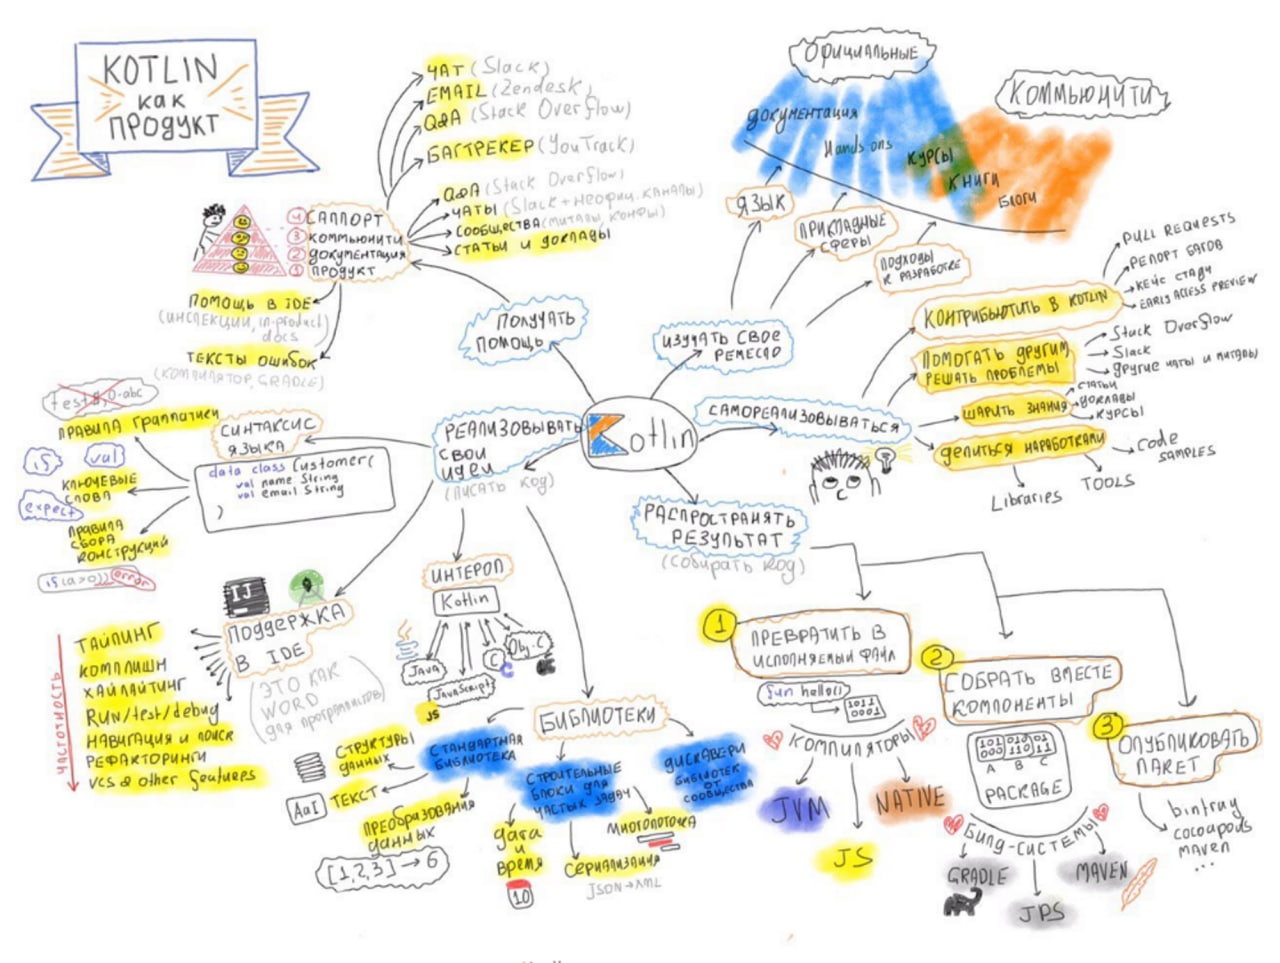 KOTLIN
как
ПРОДУКТ
ЧАТ (Slack)
EMAIL (Zendesk)
Q&A (Stack Overflow)
БАГТРЕКЕР (YouTrack)
Q&A (Stack Overflow)
ЧАТЫ (Slack + неофиц. каналы)
СООБЩЕСТВА (митапы, конфы)
СТАТЬИ И ДОКЛАДЫ
4 САППОРТ
3 КОММЬЮНИТИ
2 ДОКУМЕНТАЦИЯ
1 ПРОДУКТ
ПОМОЩЬ В IDE
(ИНСПЕКЦИИ, in-product
docs)
ТЕКСТЫ ОШИБОК
(КОМПИЛЯТОР, GRADLE)
ПОЛУЧАТЬ
ПОМОЩЬ
ОФИЦИАЛЬНЫЕ
КОММЬЮНИТИ
ДОКУМЕНТАЦИЯ
Hands ons
КУРСЫ
КНИГИ
БЛОГИ
ЯЗЫК
ПРИКЛАДНЫЕ
СФЕРЫ
ПОДХОДЫ
К РАЗРАБОТКЕ
ИЗУЧАТЬ СВОЕ
РЕМЕСЛО
КОНТРИБЬЮТИТЬ В KOTLIN
PULL REQUESTS
РЕПОРТ БАГОВ
КЕЙС СТАДИ
EARLY ACCESS PREVIEW
ПОМОГАТЬ ДРУГИМ
РЕШАТЬ ПРОБЛЕМЫ
Stack Overflow
Slack
ДРУГИЕ ЧАТЫ И МИТАПЫ
ШАРИТЬ ЗНАНИЯ
СТАТЬИ
ДОКЛАДЫ
КУРСЫ
ДЕЛИТЬСЯ НАРАБОТКАМИ
Code
SAMPLES
TOOLS
Libraries
САМОРЕАЛИЗОВЫВАТЬСЯ
Kotlin
РЕАЛИЗОВЫВАТЬ
СВОИ
ИДЕИ
(ПИСАТЬ КОД)
СИНТАКСИС
ЯЗЫКА
ПРАВИЛА ГРАММАТИКИ
if
val
КЛЮЧЕВЫЕ
СЛОВА
expect
ПРАВИЛА
СБОРА
КОНСТРУКЦИЙ
if (a>0)) error
data class Customer(
val name String
val email String
)
РАСПРОСТРАНЯТЬ
РЕЗУЛЬТАТ
(Собирать код)
IJ
ПОДДЕРЖКА
В IDE
(ЭТО КАК
WORD
для программистов)
ЧАСТОТНОСТЬ
ТАЙПИНГ
КОМПЛИШН
ХАЙЛАЙТИНГ
RUN/test/debug
НАВИГАЦИЯ И ПОИСК
РЕФАКТОРИНГИ
VCS & other features
ИНТЕРОП
Kotlin
JAVA
JavaScript
JS
C
C
Obj-C
БИБЛИОТЕКИ
СТАНДАРТНАЯ
БИБЛИОТЕКА
СТРУКТУРЫ
ДАННЫХ
AaI
ТЕКСТ
ПРЕОБРАЗОВАНИЯ
ДАННЫХ
[1,2,3] → 6
СТРОИТЕЛЬНЫЕ
БЛОКИ ДЛЯ
ЧАСТЫХ ЗАДАЧ
ДАТА
И
ВРЕМЯ
10
СЕРИАЛИЗАЦИЯ
JSON→XML
МНОГОПОТОЧКА
ДИСКАВЕРИ
БИБЛИОТЕК
ОТ
СООБЩЕСТВА
1
ПРЕВРАТИТЬ В
ИСПОЛНЯЕМЫЙ ФАЙЛ
fun hello()
1011
0001
КОМПИЛЯТОРЫ
JVM
JS
NATIVE
2
СОБРАТЬ ВМЕСТЕ
КОМПОНЕНТЫ
A B C
PACKAGE
БИЛД-СИСТЕМЫ
GRADLE
JPS
MAVEN
3
ОПУБЛИКОВАТЬ
ПАКЕТ
bintray
cocoapods
maven
...